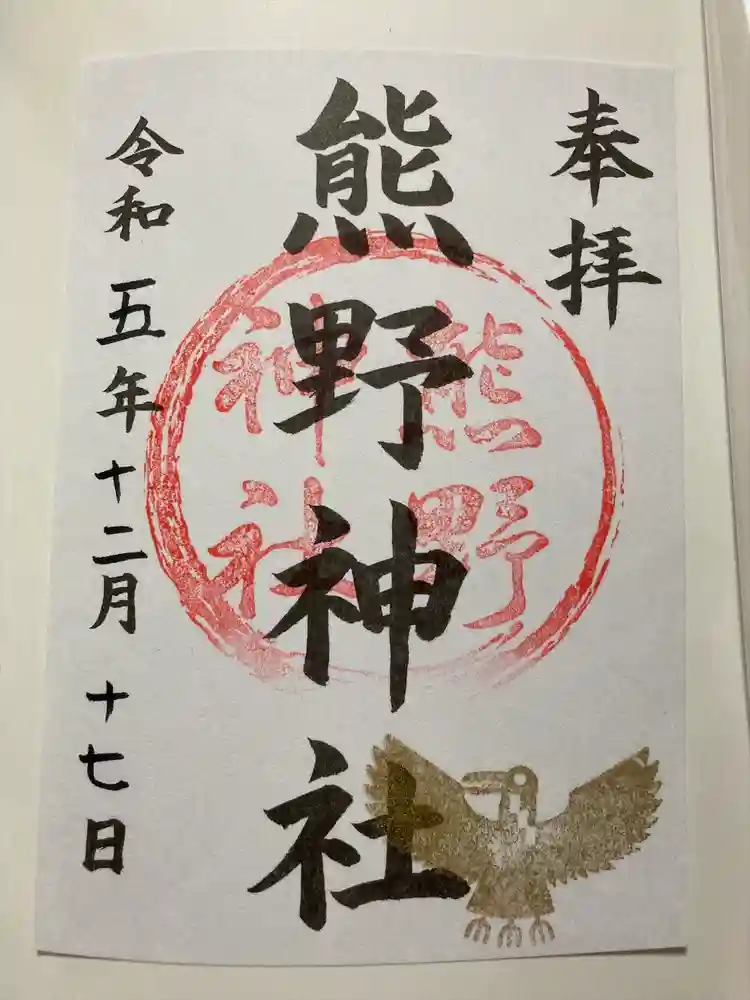 奉拝
熊野神社
熊野
神社
令和五年十二月十七日